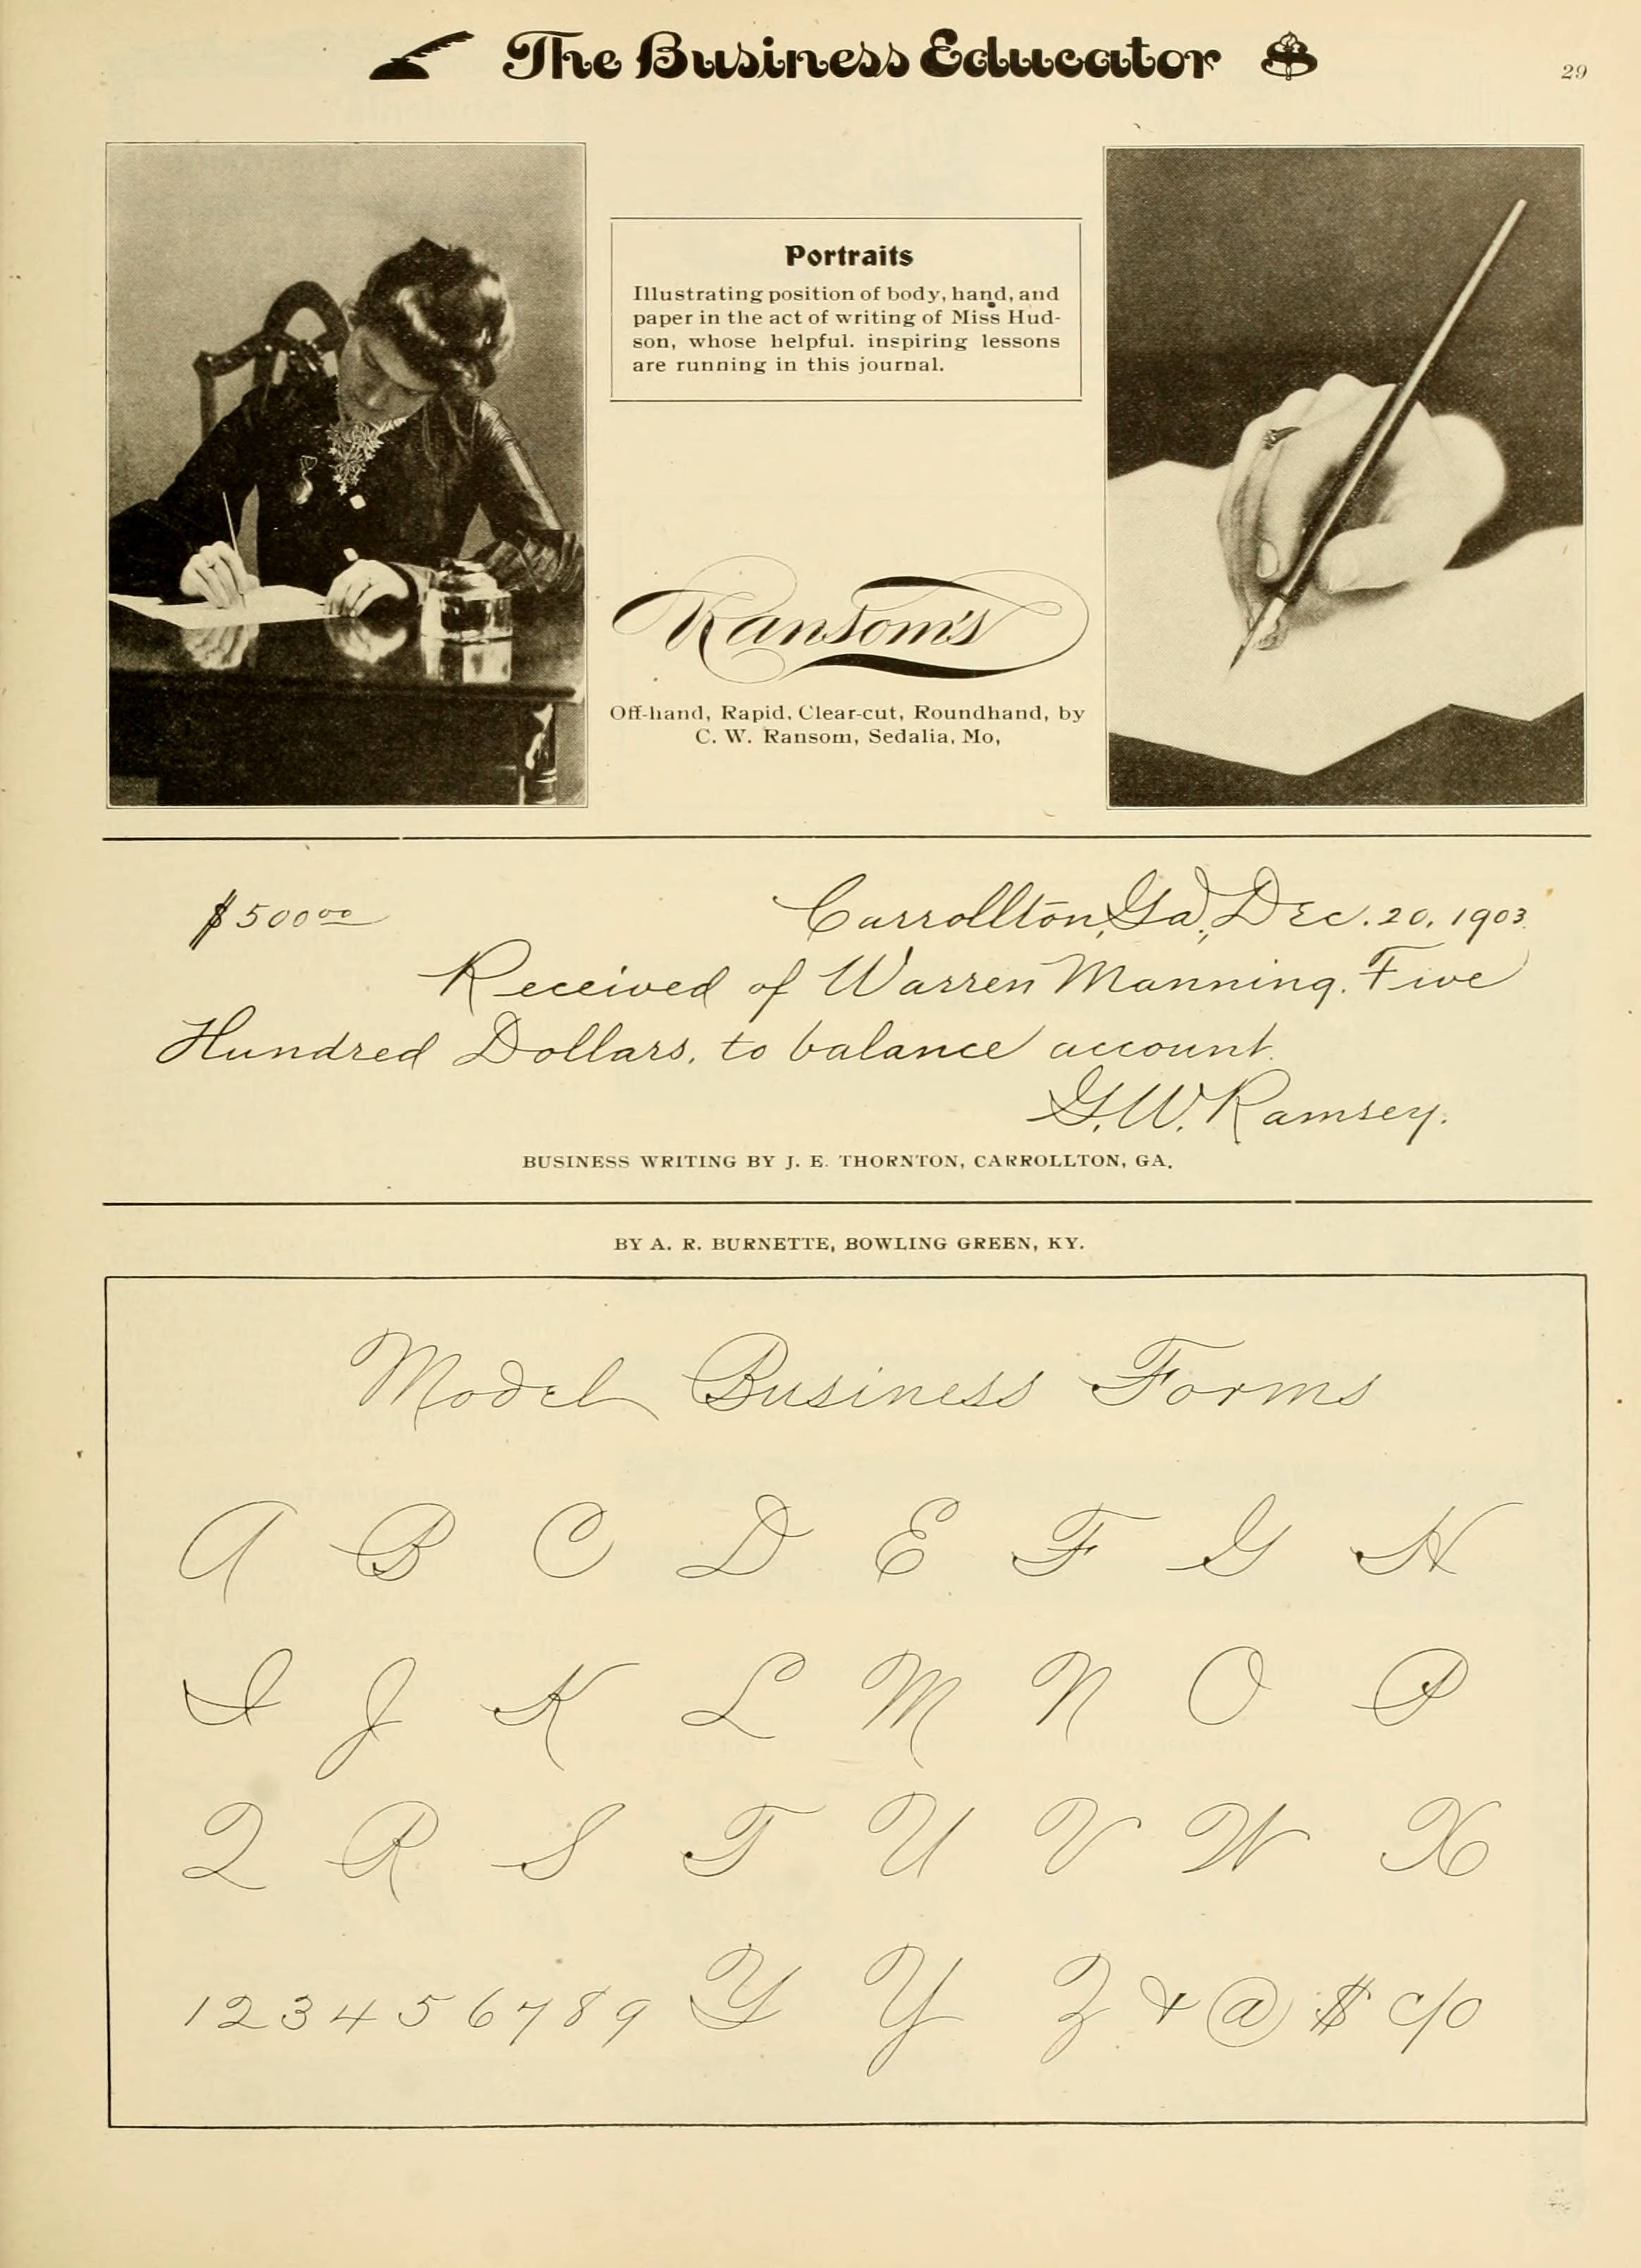 The Business Educator
29
Portraits
Illustrating position of body, hand, and
paper in the act of writing of Miss Hud-
son, whose helpful. inspiring lessons
are running in this journal.
Ransom's
Off-hand, Rapid, Clear-cut, Roundhand, by
C. W. Ransom, Sedalia, Mo,
$500 00 Carrollton, Ga., Dec. 20, 1903.
Received of Warren Manning. Five
Hundred Dollars, to balance account.
G. W. Ramsey.
BUSINESS WRITING BY J. E. THORNTON, CARROLLTON, GA.
BY A. R. BURNETTE, BOWLING GREEN, KY.
Model Business Forms
A B C D E F G H
I J K L M N O P
Q R S T U V W X
1 2 3 4 5 6 7 8 9 Y Y Z & @ $ c/o